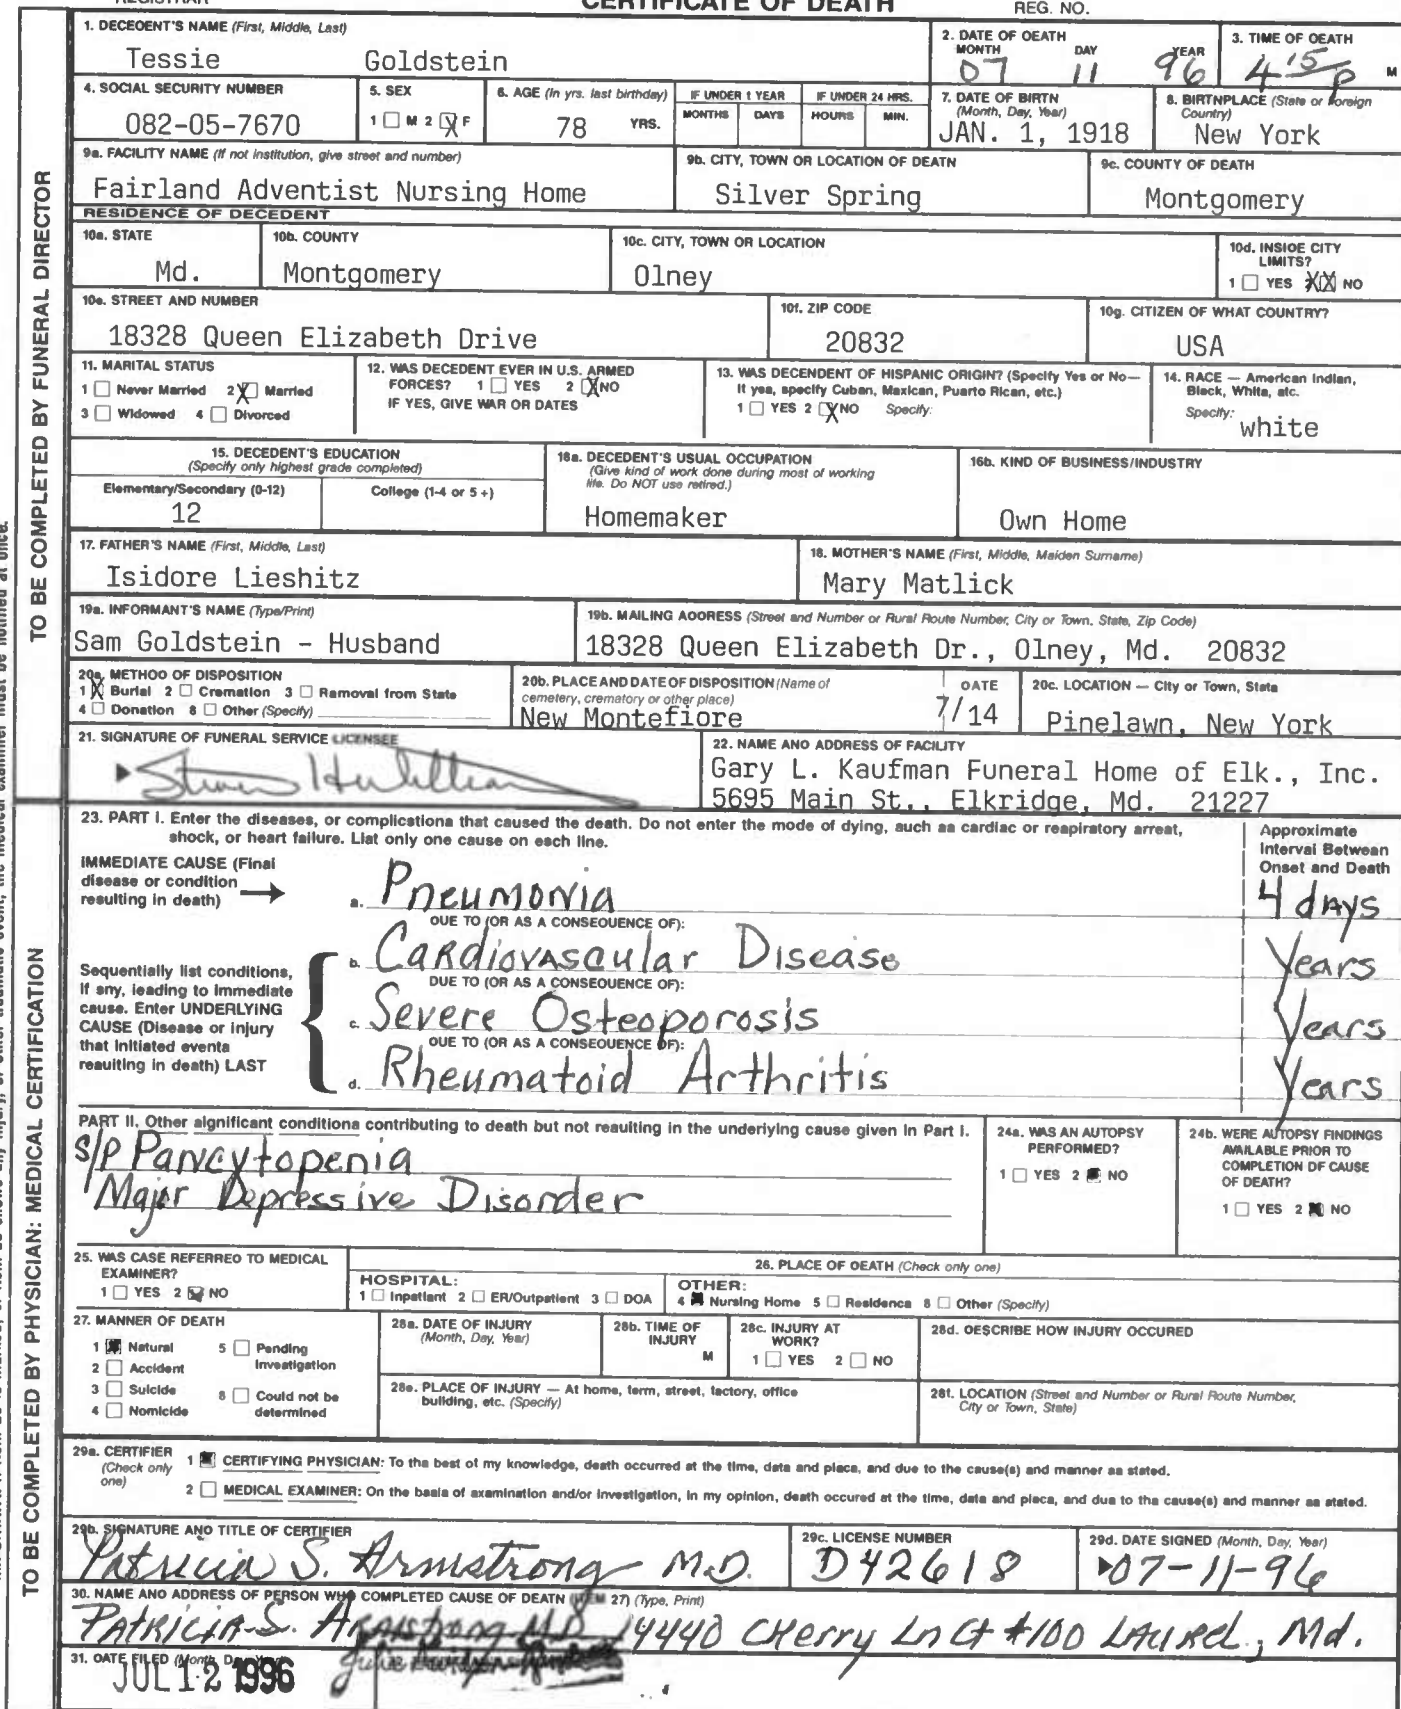 CERTIFICATE OF DEATH
REG. NO.
TO BE COMPLETED BY FUNERAL DIRECTOR
1. DECEDENT'S NAME (First, Middle, Last)
Tessie Goldstein
2. DATE OF DEATH
MONTH DAY YEAR
07 11 96
3. TIME OF DEATH
4 15 p M
4. SOCIAL SECURITY NUMBER
082-05-7670
5. SEX
1 ☐ M 2 ☒ F
6. AGE (In yrs. last birthday)
78 YRS.
IF UNDER 1 YEAR
MONTHS DAYS
IF UNDER 24 HRS.
HOURS MIN.
7. DATE OF BIRTH
(Month, Day, Year)
JAN. 1, 1918
8. BIRTHPLACE (State or Foreign
Country)
New York
9a. FACILITY NAME (If not institution, give street and number)
Fairland Adventist Nursing Home
9b. CITY, TOWN OR LOCATION OF DEATH
Silver Spring
9c. COUNTY OF DEATH
Montgomery
RESIDENCE OF DECEDENT
10a. STATE
Md.
10b. COUNTY
Montgomery
10c. CITY, TOWN OR LOCATION
Olney
10d. INSIDE CITY
LIMITS?
1 ☐ YES XX NO
10e. STREET AND NUMBER
18328 Queen Elizabeth Drive
10f. ZIP CODE
20832
10g. CITIZEN OF WHAT COUNTRY?
USA
11. MARITAL STATUS
1 ☐ Never Married 2 ☒ Married
3 ☐ Widowed 4 ☐ Divorced
12. WAS DECEDENT EVER IN U.S. ARMED
FORCES? 1 ☐ YES 2 ☒ NO
IF YES, GIVE WAR OR DATES
13. WAS DECENDENT OF HISPANIC ORIGIN? (Specify Yes or No—
If yes, specify Cuban, Mexican, Puerto Rican, etc.)
1 ☐ YES 2 ☒ NO Specify:
14. RACE — American Indian,
Black, White, etc.
Specify: white
15. DECEDENT'S EDUCATION
(Specify only highest grade completed)
Elementary/Secondary (0-12) College (1-4 or 5 +)
12
16a. DECEDENT'S USUAL OCCUPATION
(Give kind of work done during most of working
life. Do NOT use retired.)
Homemaker
16b. KIND OF BUSINESS/INDUSTRY
Own Home
17. FATHER'S NAME (First, Middle, Last)
Isidore Lieshitz
18. MOTHER'S NAME (First, Middle, Maiden Surname)
Mary Matlick
19a. INFORMANT'S NAME (Type/Print)
Sam Goldstein - Husband
19b. MAILING ADDRESS (Street and Number or Rural Route Number, City or Town, State, Zip Code)
18328 Queen Elizabeth Dr., Olney, Md. 20832
20a. METHOD OF DISPOSITION
1 ☒ Burial 2 ☐ Cremation 3 ☐ Removal from State
4 ☐ Donation 8 ☐ Other (Specify)
20b. PLACE AND DATE OF DISPOSITION (Name of
cemetery, crematory or other place)
New Montefiore
DATE
7/14
20c. LOCATION — City or Town, State
Pinelawn, New York
21. SIGNATURE OF FUNERAL SERVICE LICENSEE
22. NAME AND ADDRESS OF FACILITY
Gary L. Kaufman Funeral Home of Elk., Inc.
5695 Main St., Elkridge, Md. 21227
TO BE COMPLETED BY PHYSICIAN: MEDICAL CERTIFICATION
23. PART I. Enter the diseases, or complications that caused the death. Do not enter the mode of dying, such as cardiac or respiratory arrest,
shock, or heart failure. List only one cause on each line.
Approximate
Interval Between
Onset and Death
IMMEDIATE CAUSE (Final
disease or condition
resulting in death)
a. Pneumonia 4 days
DUE TO (OR AS A CONSEQUENCE OF):
b. Cardiovascular Disease Years
DUE TO (OR AS A CONSEQUENCE OF):
Sequentially list conditions,
if any, leading to immediate
cause. Enter UNDERLYING
CAUSE (Disease or injury
that initiated events
resulting in death) LAST
c. Severe Osteoporosis Years
DUE TO (OR AS A CONSEQUENCE OF):
d. Rheumatoid Arthritis Years
PART II. Other significant conditions contributing to death but not resulting in the underlying cause given in Part I.
S/P Pancytopenia
Major Depressive Disorder
24a. WAS AN AUTOPSY
PERFORMED?
1 ☐ YES 2 ☒ NO
24b. WERE AUTOPSY FINDINGS
AVAILABLE PRIOR TO
COMPLETION OF CAUSE
OF DEATH?
1 ☐ YES 2 ☒ NO
25. WAS CASE REFERRED TO MEDICAL
EXAMINER?
1 ☐ YES 2 ☒ NO
26. PLACE OF DEATH (Check only one)
HOSPITAL:
1 ☐ Inpatient 2 ☐ ER/Outpatient 3 ☐ DOA
OTHER:
4 ☒ Nursing Home 5 ☐ Residence 8 ☐ Other (Specify)
27. MANNER OF DEATH
1 ☒ Natural 5 ☐ Pending
Investigation
2 ☐ Accident
3 ☐ Suicide 8 ☐ Could not be
determined
4 ☐ Homicide
28a. DATE OF INJURY
(Month, Day, Year)
28b. TIME OF
INJURY
M
28c. INJURY AT
WORK?
1 ☐ YES 2 ☐ NO
28d. DESCRIBE HOW INJURY OCCURED
28e. PLACE OF INJURY — At home, term, street, factory, office
building, etc. (Specify)
28f. LOCATION (Street and Number or Rural Route Number,
City or Town, State)
29a. CERTIFIER
(Check only
one)
1 ☒ CERTIFYING PHYSICIAN: To the best of my knowledge, death occurred at the time, date and place, and due to the cause(s) and manner as stated.
2 ☐ MEDICAL EXAMINER: On the basis of examination and/or investigation, in my opinion, death occured at the time, data and place, and due to the cause(s) and manner as stated.
29b. SIGNATURE AND TITLE OF CERTIFIER
Patricia S. Armstrong M.D.
29c. LICENSE NUMBER
D42618
29d. DATE SIGNED (Month, Day, Year)
07-11-96
30. NAME AND ADDRESS OF PERSON WHO COMPLETED CAUSE OF DEATH (ITEM 27) (Type, Print)
Patricia S. Armstrong M.D. 14440 Cherry Ln Ct #100 Laurel, Md.
31. DATE FILED (Month, Day, Year)
JUL 12 1996